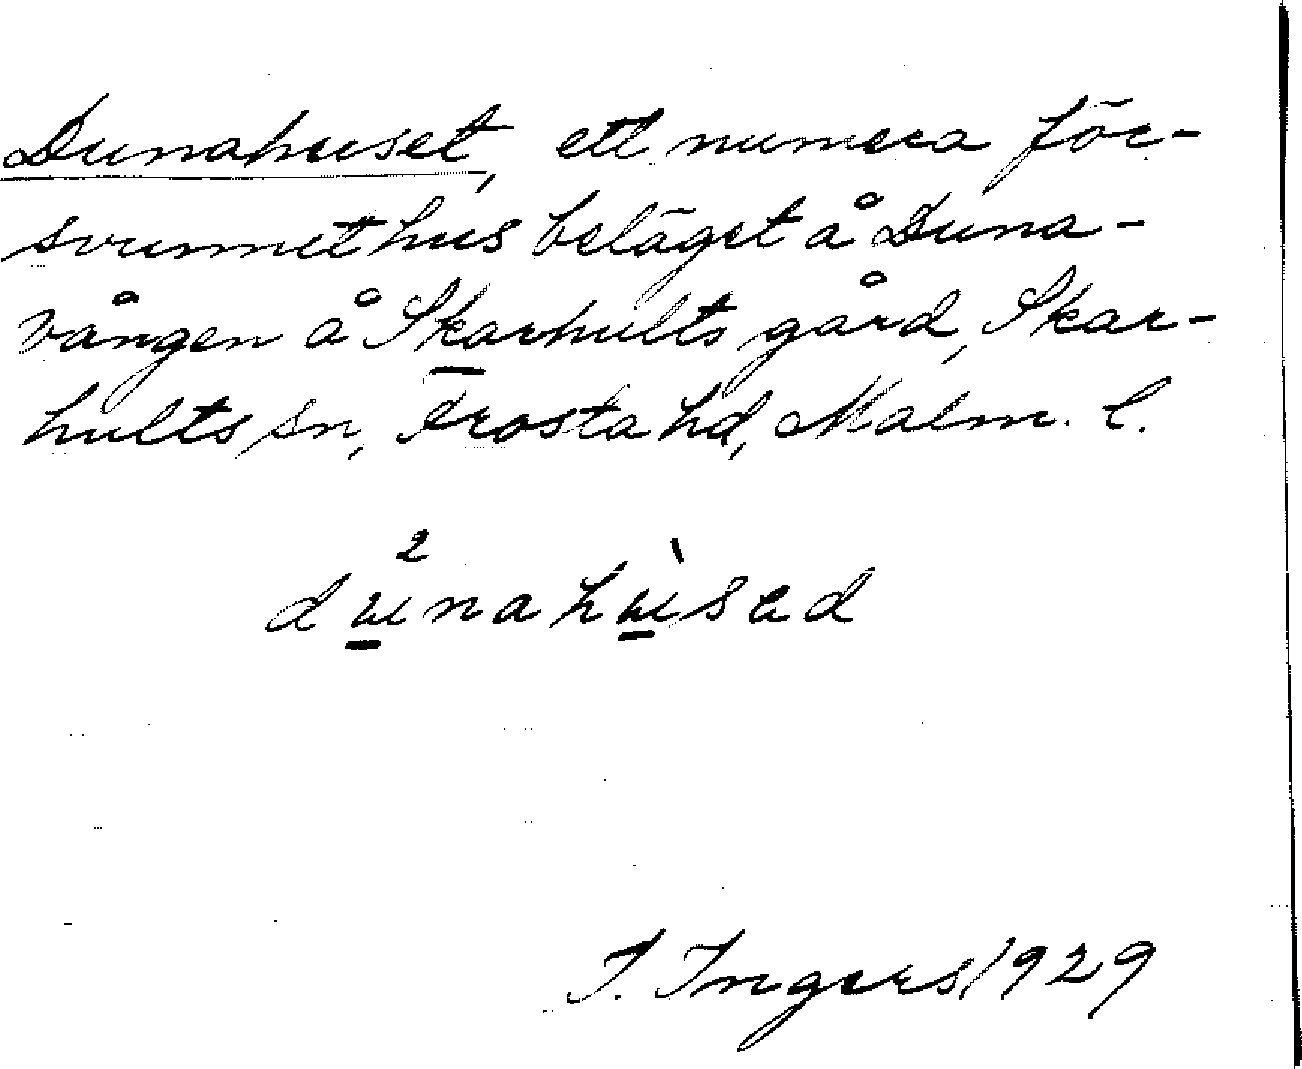 Dunahuset, ett numera för-
svunnet hus beläget å Duna-
vången å Skarhults gård, Skar-
hults sn, Frosta hd, Malm. l.
du²nahùsed
I. Ingers 1929